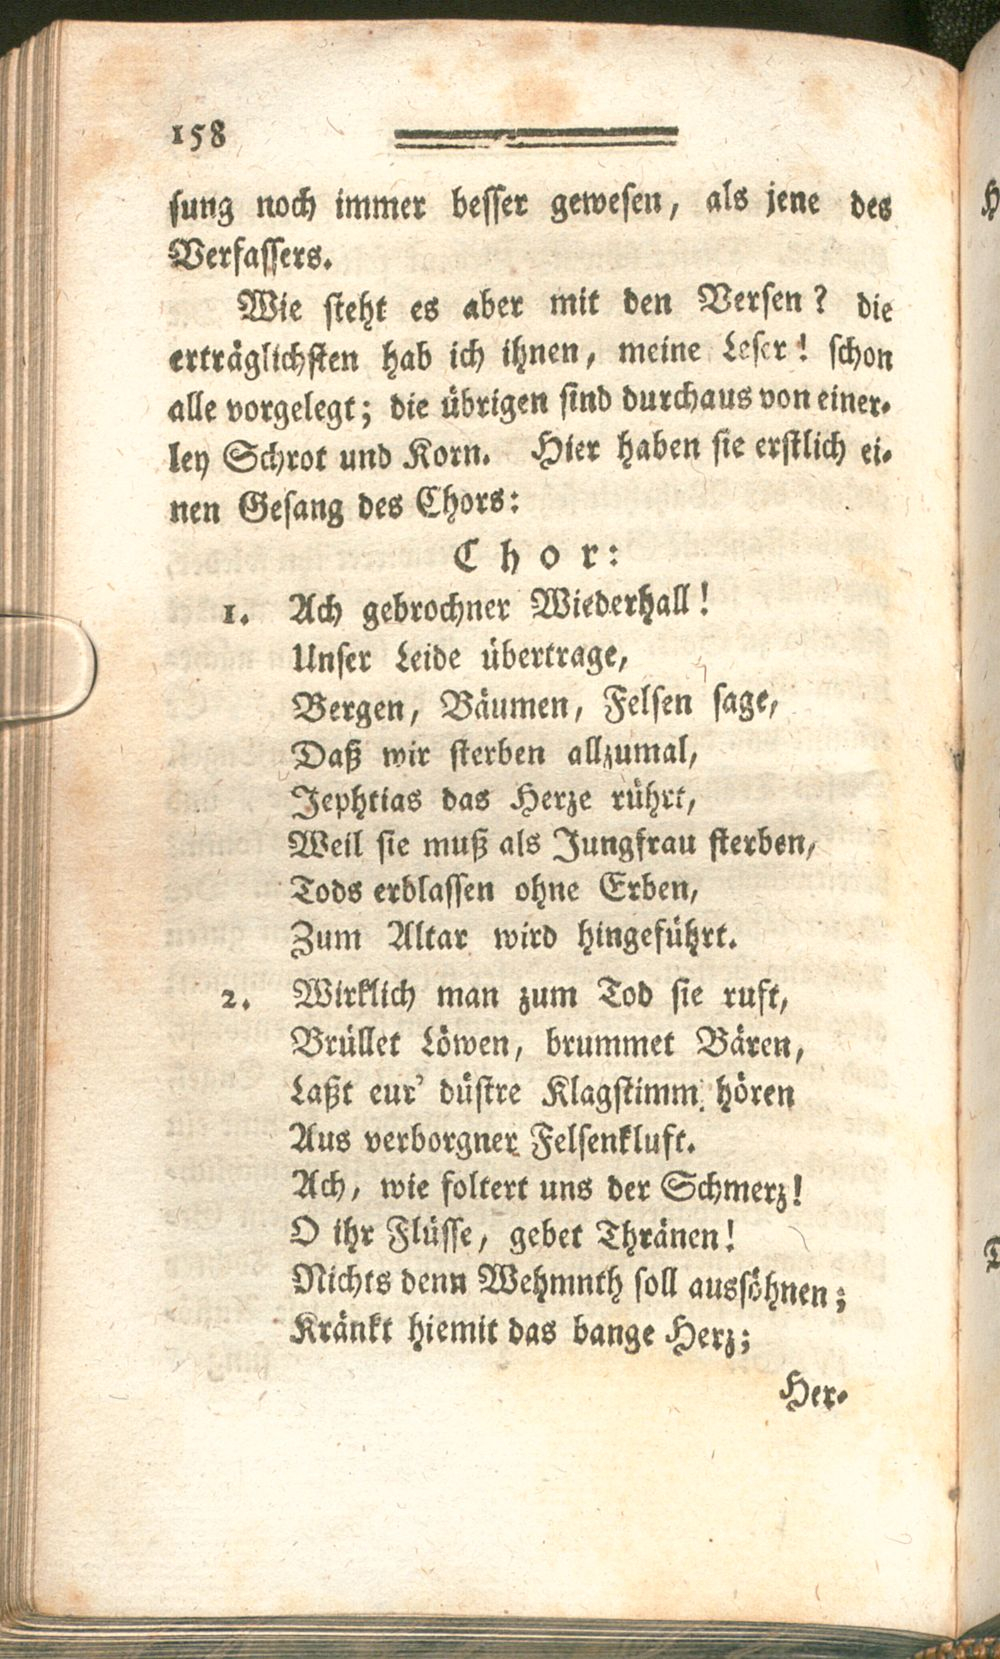 158
sung noch immer besser gewesen, als jene des
Verfassers.
Wie steht es aber mit den Versen? die
erträglichsten hab ich ihnen, meine Leser! schon
alle vorgelegt; die übrigen sind durchaus von einer-
ley Schrot und Korn. Hier haben sie erstlich ei-
nen Gesang des Chors:
Chor:
1. Ach gebrochner Wiederhall!
Unser Leide übertrage,
Bergen, Bäumen, Felsen sage,
Daß wir sterben allzumal,
Jephtias das Herze rührt,
Weil sie muß als Jungfrau sterben,
Tods erblassen ohne Erben,
Zum Altar wird hingeführt.
2. Wirklich man zum Tod sie ruft,
Brüllet Löwen, brummet Bären,
Laßt eur' düstre Klagstimm hören
Aus verborgner Felsenkluft.
Ach, wie foltert uns der Schmerz!
O ihr Flüsse, gebet Thränen!
Nichts denn Wehmnth soll aussöhnen;
Kränkt hiemit das bange Herz;
Her-